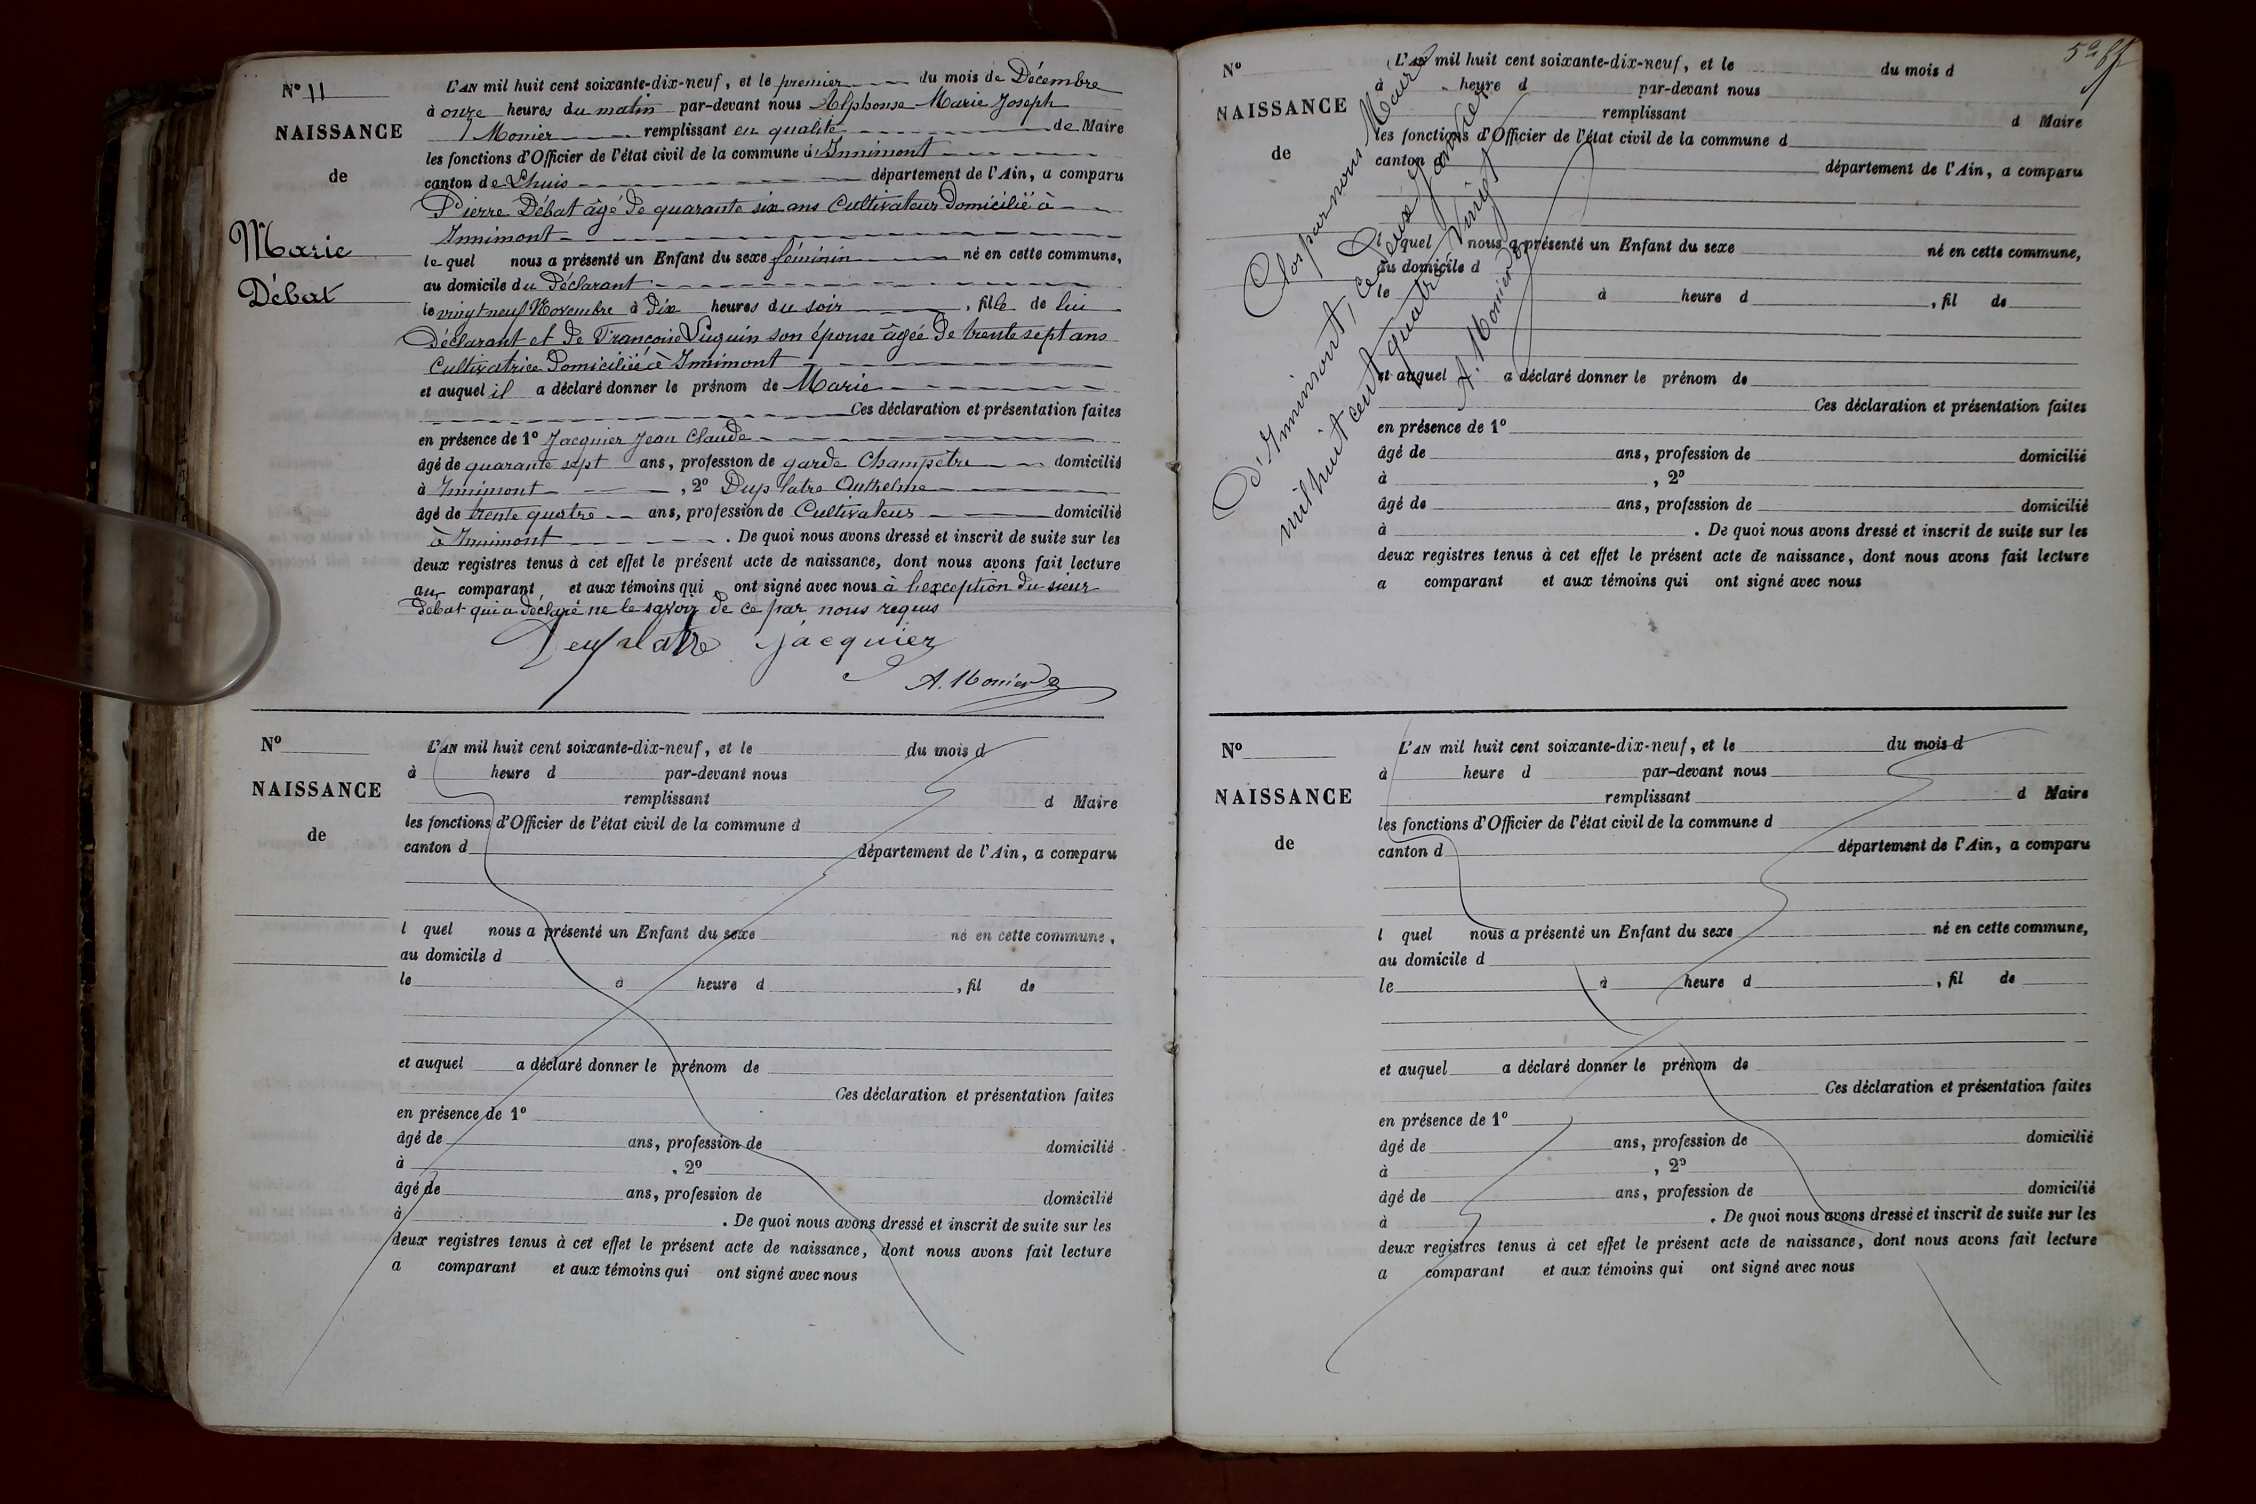 N° 11
NAISSANCE
de
Marie
Débat
L'AN mil huit cent soixante-dix-neuf, et le premier du mois de Décembre
à onze heures du matin par-devant nous Alphonse Marie Joseph
Monier remplissant en qualité de Maire
les fonctions d'Officier de l'état civil de la commune d'Innimont
canton de Lhuis département de l'Ain, a comparu
Pierre Débat âgé de quarante six ans Cultivateur domicilié à
Innimont
le quel nous a présenté un Enfant du sexe féminin né en cette commune,
au domicile du Déclarant
le vingt neuf Novembre à dix heures du soir, fille de lui
Déclarant et de Françoise Luquin son épouse âgée de trente sept ans
Cultivatrice domiciliée à Innimont
et auquel il a déclaré donner le prénom de Marie
Ces déclaration et présentation faites
en présence de 1° Jacquier Jean Claude
âgé de quarante sept ans, profession de garde Champêtre domicilié
à Innimont, 2° Duplatre Anthelme
âgé de trente quatre ans, profession de Cultivateur domicilié
à Innimont. De quoi nous avons dressé et inscrit de suite sur les
deux registres tenus à cet effet le présent acte de naissance, dont nous avons fait lecture
au comparant, et aux témoins qui ont signé avec nous à l'exception du sieur
débat qui a déclaré ne le savoir de ce par nous requis
Duplatre Jacquier
A. Monier
N°
NAISSANCE
de
L'AN mil huit cent soixante-dix-neuf, et le du mois d
à heure d par-devant nous
remplissant d Maire
les fonctions d'Officier de l'état civil de la commune d
canton d département de l'Ain, a comparu
l quel nous a présenté un Enfant du sexe né en cette commune,
au domicile d
le à heure d , fil de
et auquel a déclaré donner le prénom de
Ces déclaration et présentation faites
en présence de 1°
âgé de ans, profession de domicilié
à , 2°
âgé de ans, profession de domicilié
à . De quoi nous avons dressé et inscrit de suite sur les
deux registres tenus à cet effet le présent acte de naissance, dont nous avons fait lecture
a comparant et aux témoins qui ont signé avec nous
N°
NAISSANCE
de
L'AN mil huit cent soixante-dix-neuf, et le du mois d
à heure d par-devant nous
remplissant d Maire
les fonctions d'Officier de l'état civil de la commune d
canton département de l'Ain, a comparu
l quel nous a présenté un Enfant du sexe né en cette commune,
au domicile d
le à heure d , fil de
et auquel a déclaré donner le prénom de
Ces déclaration et présentation faites
en présence de 1°
âgé de ans, profession de domicilié
à , 2°
âgé de ans, profession de domicilié
à . De quoi nous avons dressé et inscrit de suite sur les
deux registres tenus à cet effet le présent acte de naissance, dont nous avons fait lecture
a comparant et aux témoins qui ont signé avec nous
Clos par nous Maire
D'Innimont, ce deux Janvier
mil huit cent quatre Vingt
A. Monier
N°
NAISSANCE
de
L'AN mil huit cent soixante-dix-neuf, et le du mois d
à heure d par-devant nous
remplissant d Maire
les fonctions d'Officier de l'état civil de la commune d
canton d département de l'Ain, a comparu
l quel nous a présenté un Enfant du sexe né en cette commune,
au domicile d
le à heure d , fil de
et auquel a déclaré donner le prénom de
Ces déclaration et présentation faites
en présence de 1°
âgé de ans, profession de domicilié
à , 2°
âgé de ans, profession de domicilié
à . De quoi nous avons dressé et inscrit de suite sur les
deux registres tenus à cet effet le présent acte de naissance, dont nous avons fait lecture
a comparant et aux témoins qui ont signé avec nous